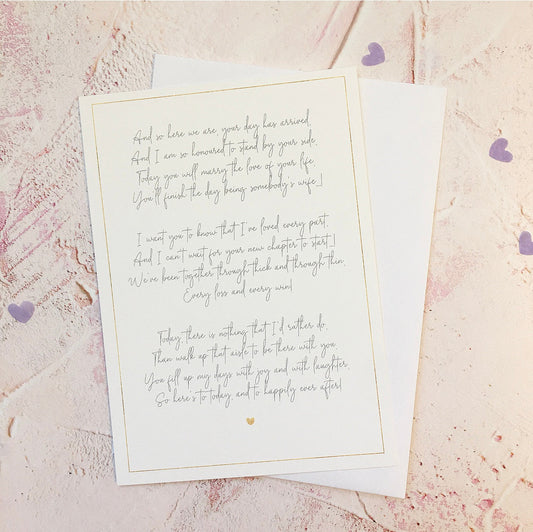 And so here we are, your day has arrived,
And I am so honoured to stand by your side.
Today you will marry the love of your life,
You'll finish the day being somebody's wife!

I want you to know that I've loved every part,
And I can't wait for your new chapter to start!
We've been together through thick and through thin,
Every loss and every win!

Today there is nothing that I'd rather do,
Than walk up that aisle to be there with you.
You fill up my days with joy and with laughter,
So here's to today, and to happily ever after!